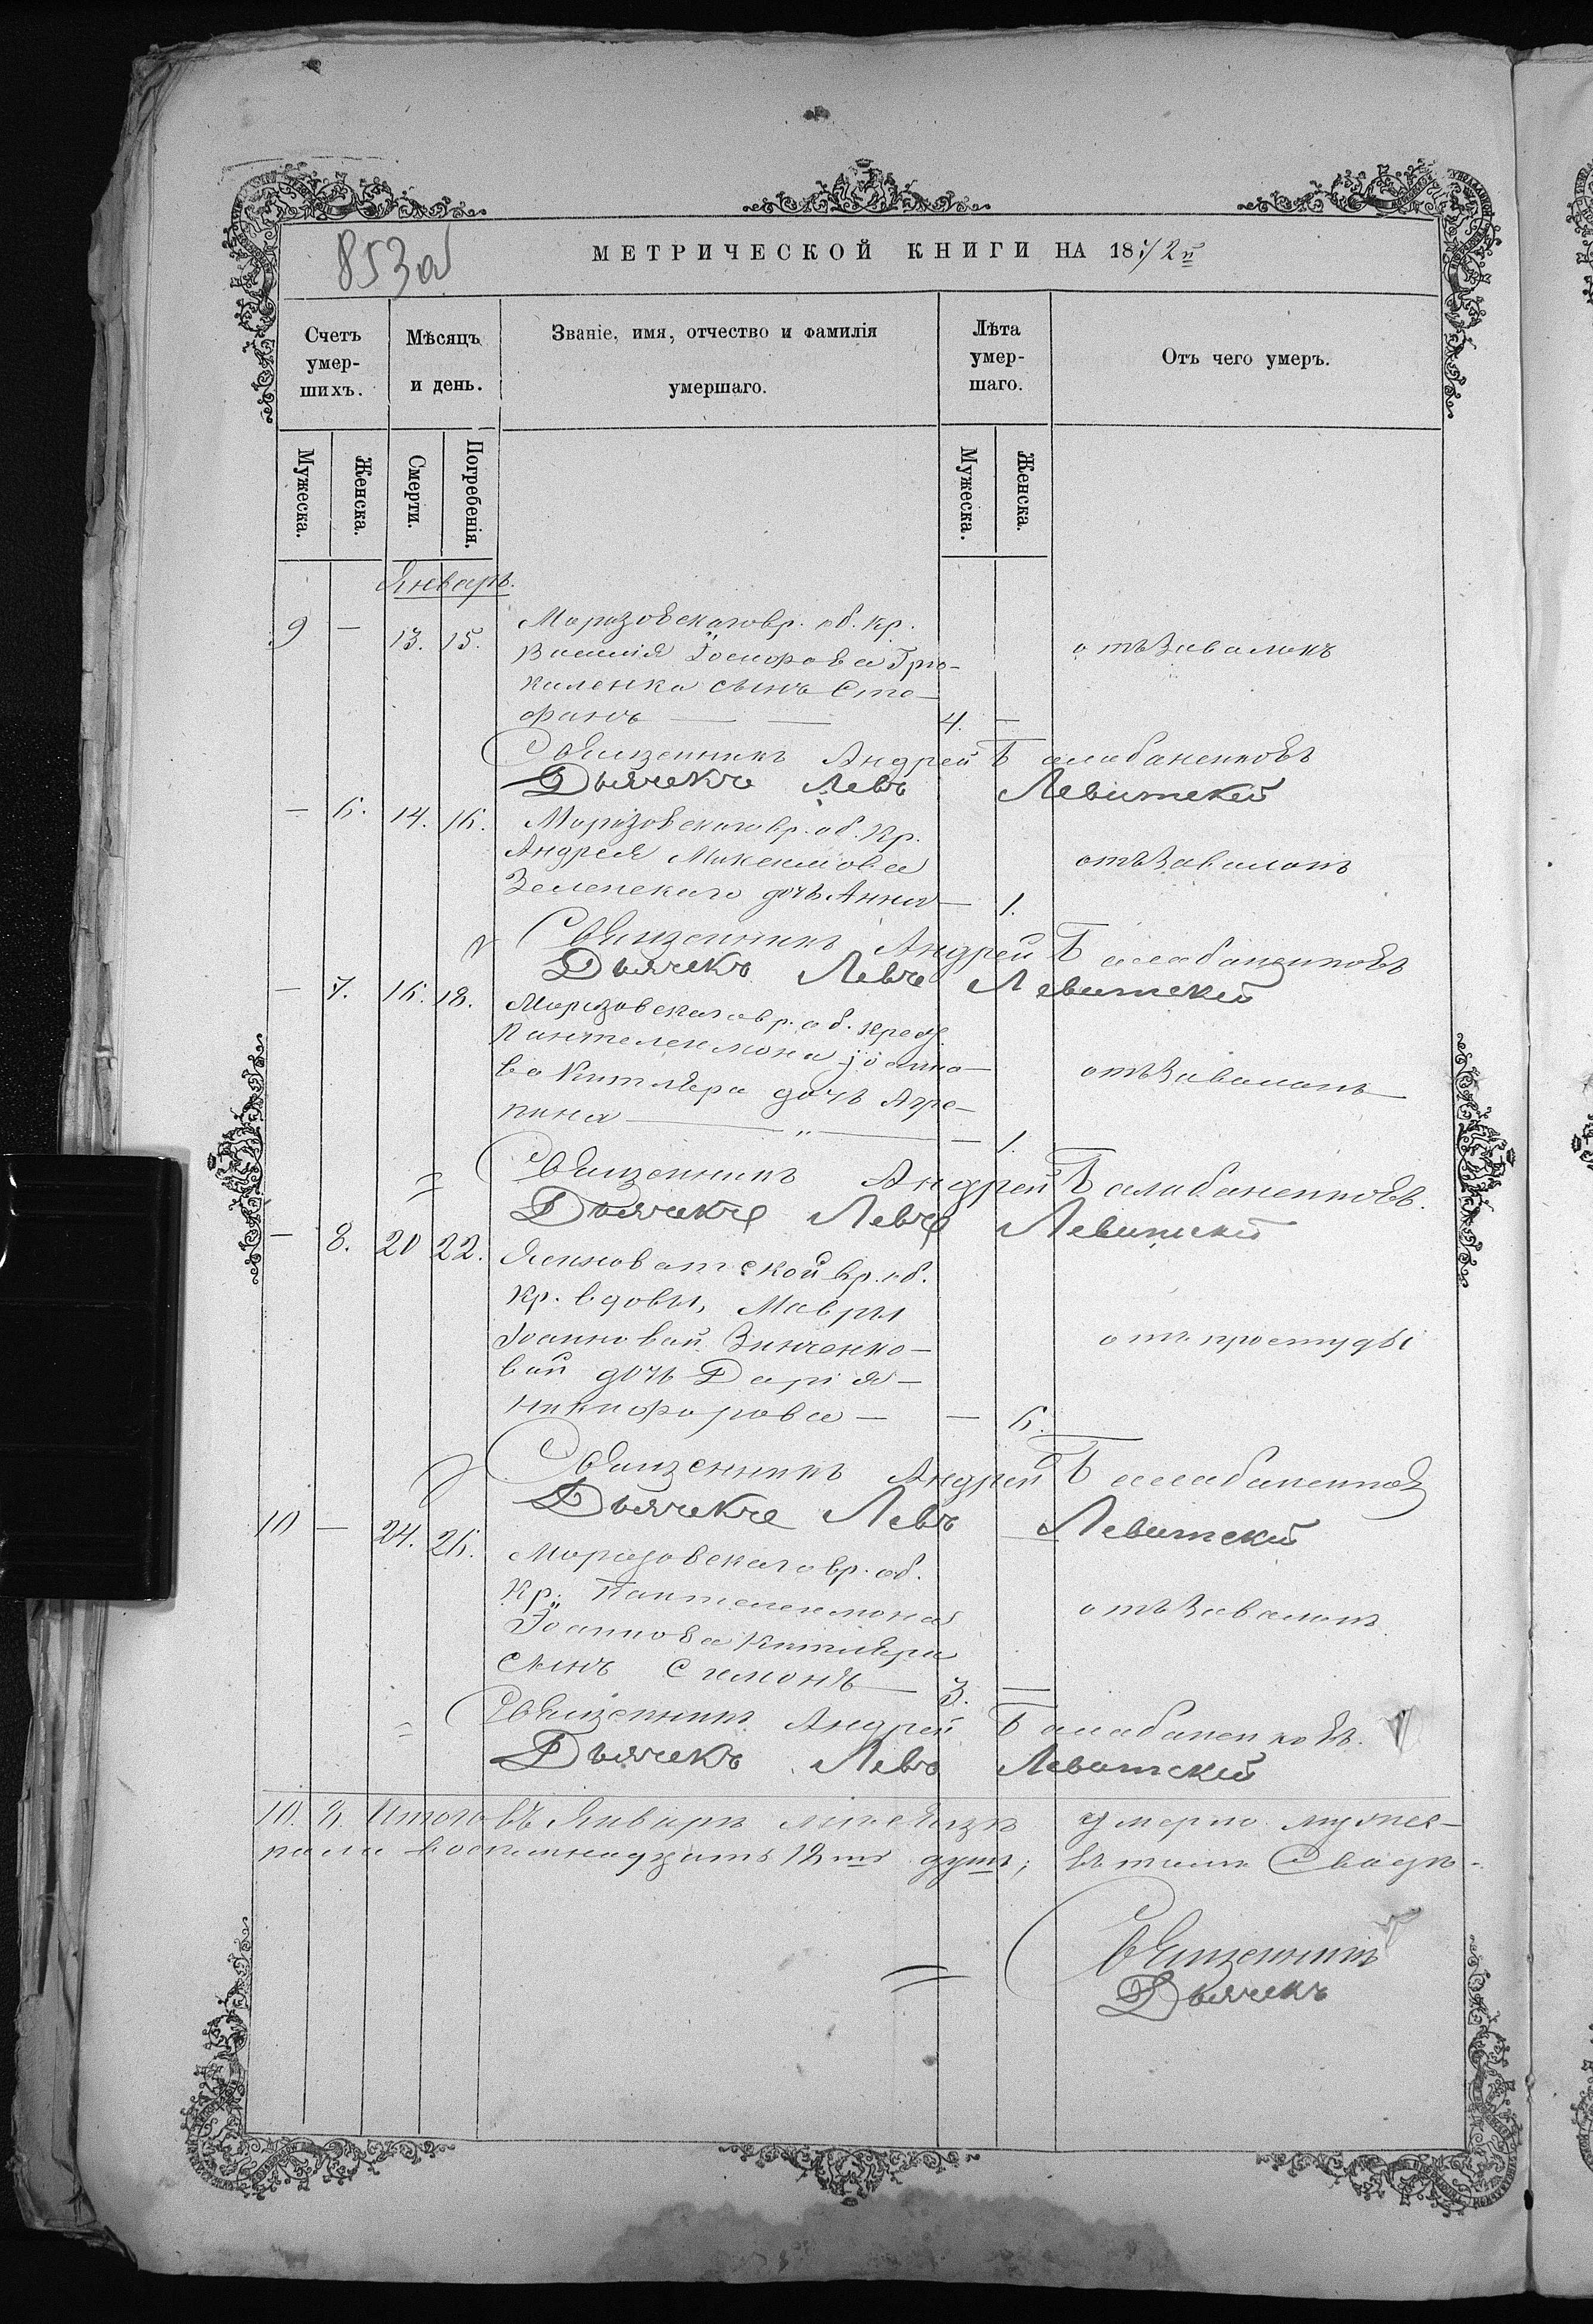 853об
МЕТРИЧЕСКОЙ КНИГИ НА 1872й
Счетъ умер-шихъ.
Мѣсяцъ и день.
Званіе, имя, отчество и фамилія умершаго.
Лѣта умер-шаго.
Отъ чего умеръ.
Мужеска.
Женска.
Смерти.
Погребенія.
Мужеска.
Женска.
Январь.
9 — 13. 15. Морозовскаго вр. об. кр.
Василія Іосифова
сынъ Сте-
фанъ — — 4. — отъ завалокъ
Священникъ Андрей Балабаненковъ
Дьячекъ Левъ Левитскій
— 6. 14. 16. Морозовскаго вр. об. кр.
Андрея Максимова отъ завалокъ
Зеленскаго дочь Анна — 1.
Священникъ Андрей Балабаненковъ
Дьячекъ Левъ Левитскій
— 7. 16. 18. Морозовскаго вр. об. крест.
Пантелеимона Іоанно-
ва Китляра дочь Агре- отъ завалокъ
пина — " — — 1.
Священникъ Андрей Балабаненковъ.
Дьячекъ Левъ Левитскій
— 8. 20 22. Ясиноватской вр. об.
кр. вдовы, Мавры
Іоанновой Зинченко- отъ простуды
вой дочь Дарія
Никифорова — — 6.
Священникъ Андрей Балабаненковъ
Дьячекъ Левъ Левитскій
10 — 24. 26. Морозовскаго вр. об.
кр. Пантелеимона отъ завалокъ
Іоаннова Китляра
сынъ Симонъ — 3. —
Священникъ Андрей Балабаненковъ.
Дьячекъ Левъ Левитскій
10. 8. Итого въ Январѣ мѣсяцѣ умерло мужес-
осьмнадцать душъ;
Священникъ
Дьячекъ